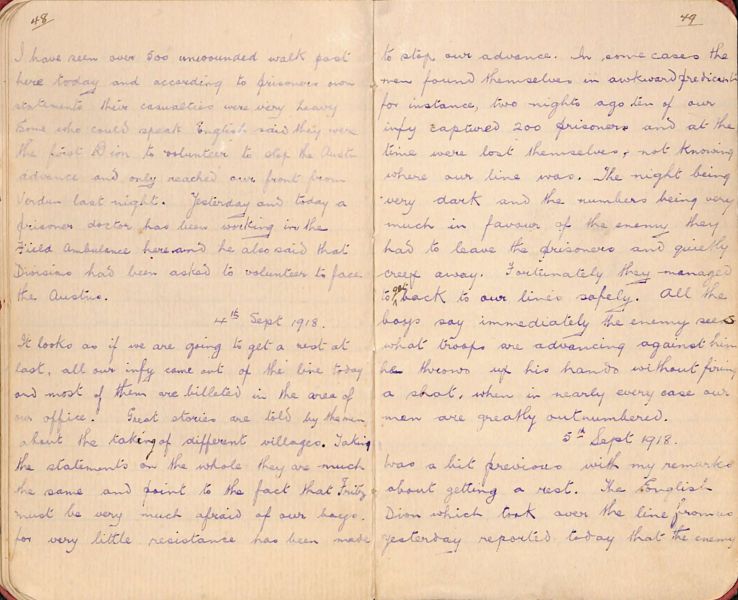 48
I have seen over 500 unwounded walk past
here today and according to prisoners own
statements their casualties were very heavy
some who could speak English said they were
the first Dion to volunteer to stop the Austn
advance and only reached our front from
Verdun last night. Yesterday and today a
prisoner doctor has been working in the
Field Ambulance here and he also said that
Divisions had been asked to volunteer to face
the Austns.
4th Sept 1918.
It looks as if we are going to get a rest at
last, all our infy came out of the line today
and most of them are billeted in the area of
our office. Great stories are told by the men
about the taking of different villages. Taking
the statements on the whole they are much
the same and point to the fact that Fritz
must be very much afraid of our boys.
for very little resistance has been made
49
to stop our advance. In some cases the
men found themselves in awkward predicaments
for instance, two nights ago ten of our
infy captured 200 prisoners and at the
time were lost themselves, not knowing
where our line was. The night being
very dark and the numbers being very
much in favour of the enemy they
had to leave the prisoners and quietly
creep away. Fortunately they managed
to get back to our lines safely. All the
boys say immediately the enemy sees
what troops are advancing against him
he throws up his hands without firing
a shot, when in nearly every case our
men are greatly outnumbered.
5th Sept 1918.
Was a bit previous with my remarks
about getting a rest. The English
Dion which took over the line from us
yesterday reported today that the enemy